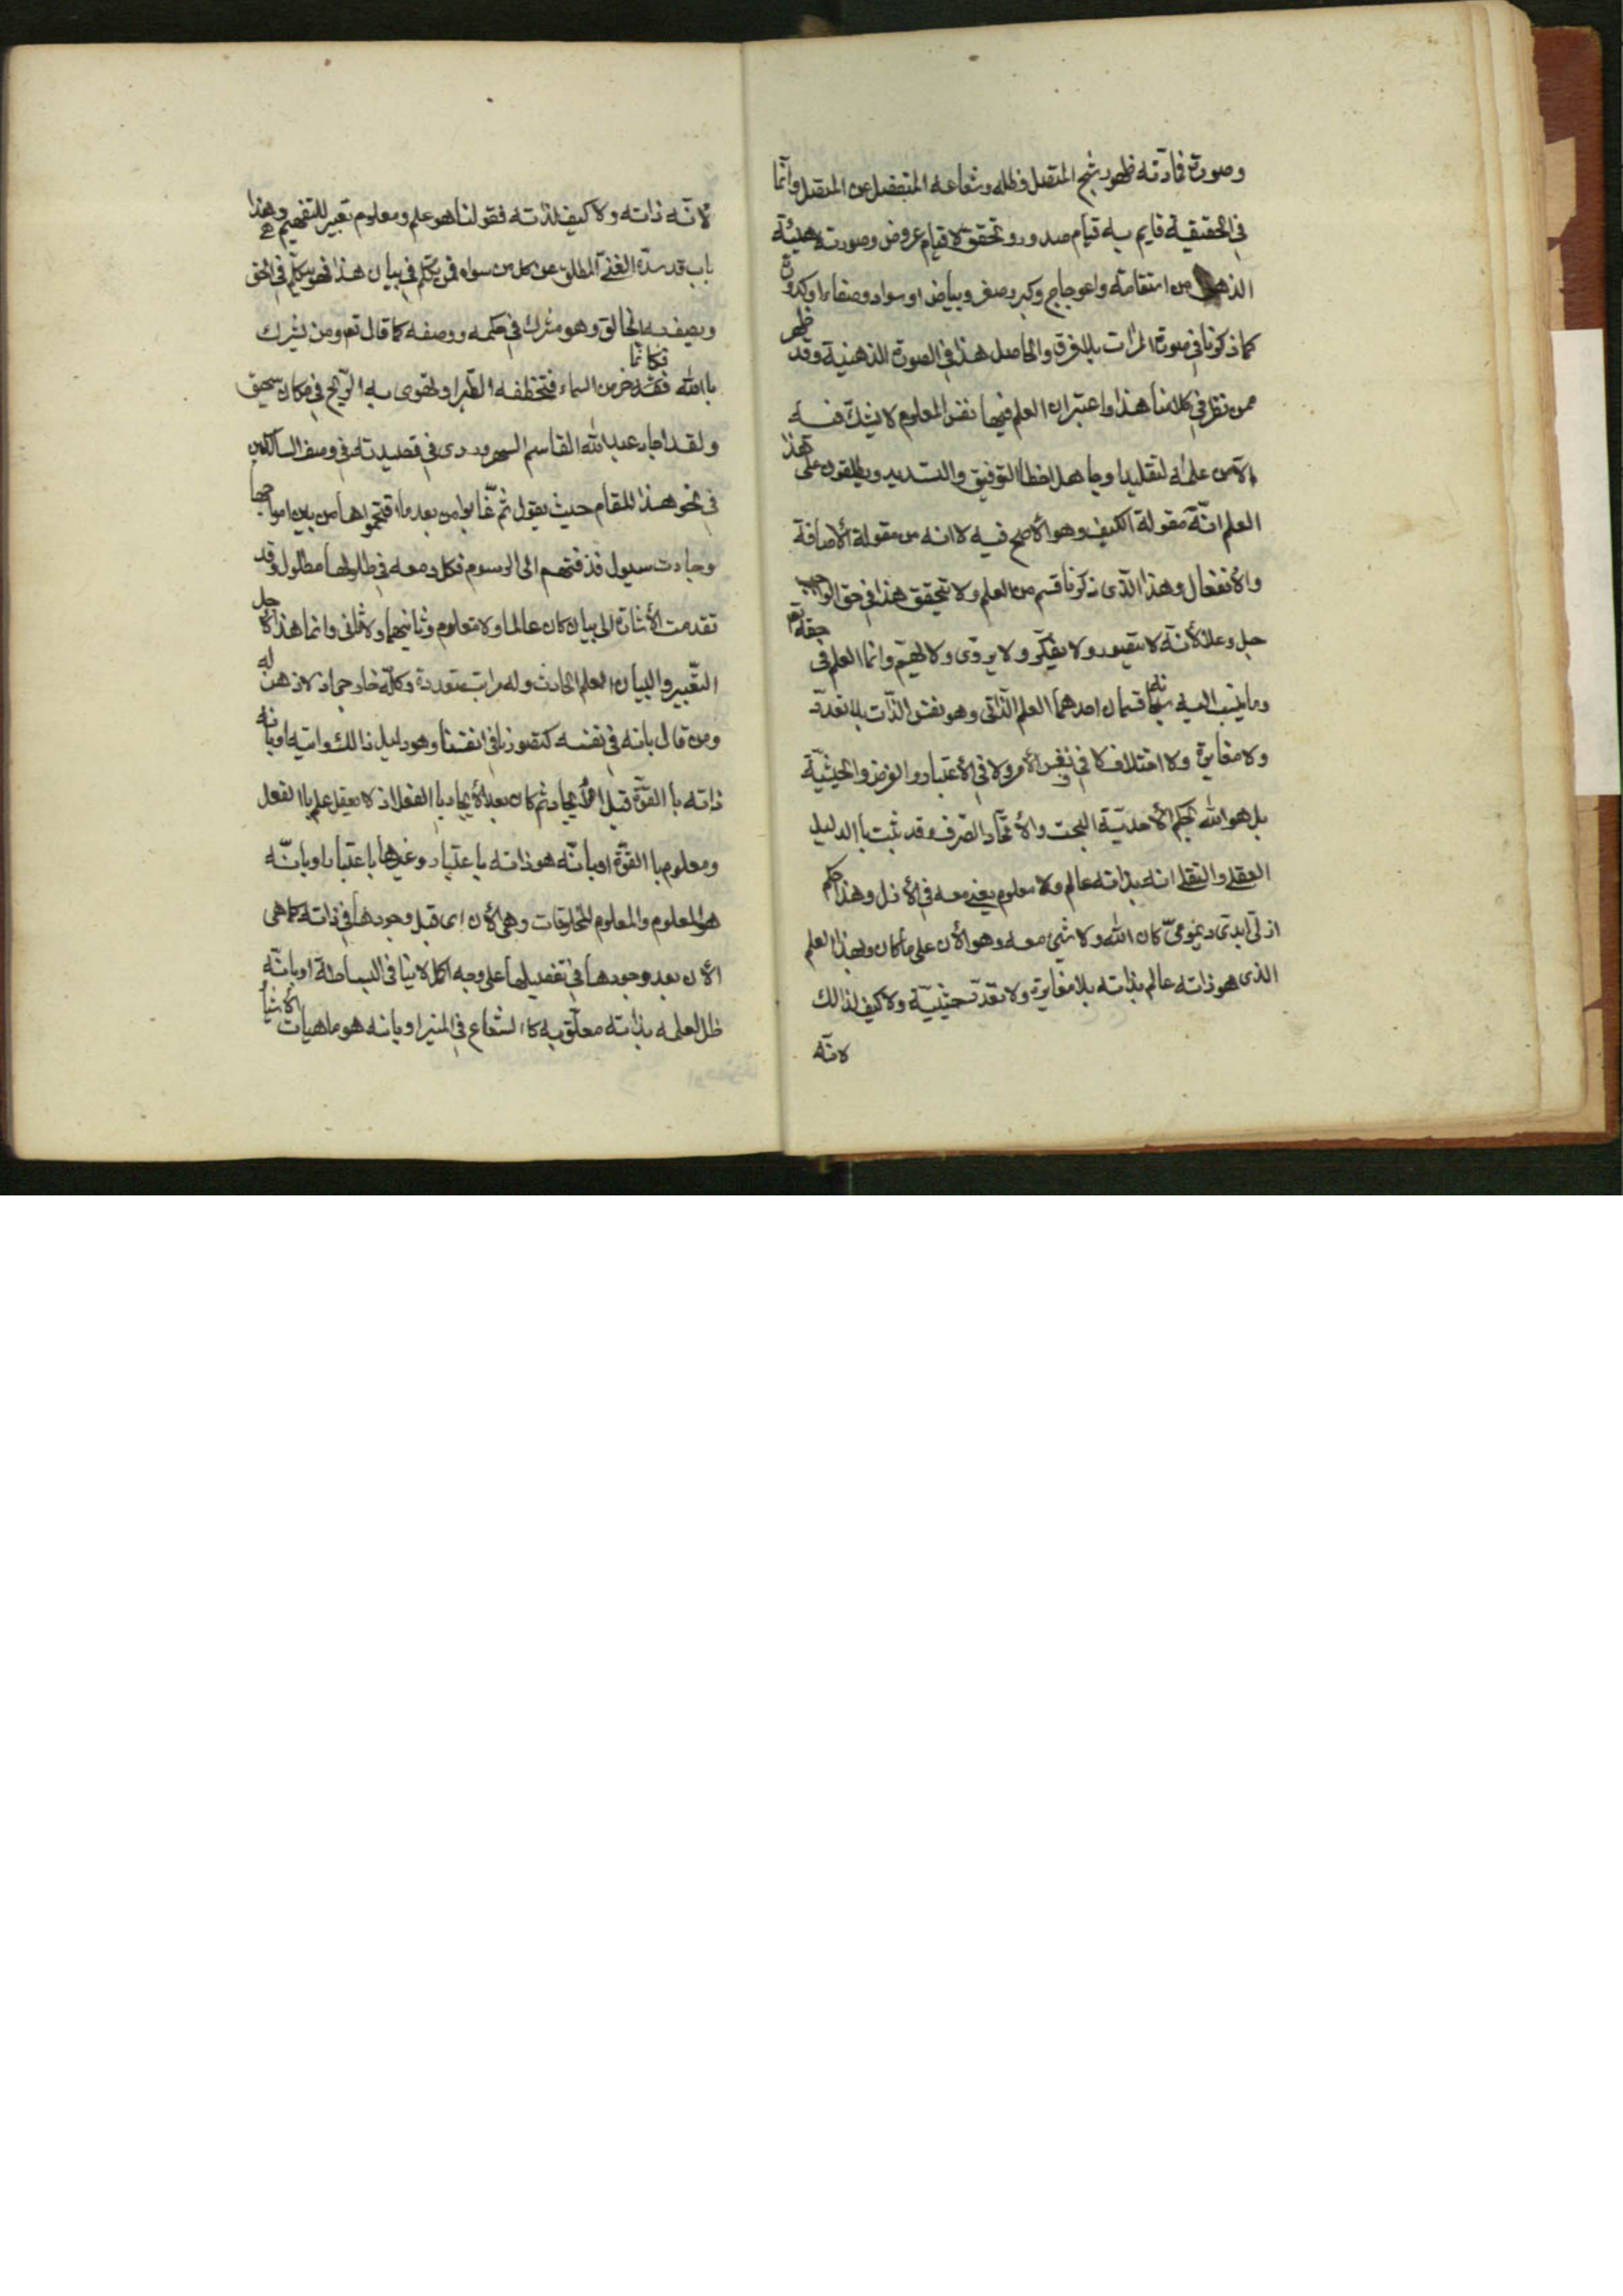 وصورة مادّته ظهور شبح المتصل وظله وشعاعه المنفصل عن المتصل وانّما
فى الحقيقة قايم به قيام صدور وتحقق لا قيام عروض وصورته هيئة
الذهن من استقامة واعوجاج وكبر وصغر وبياض او سواد وصفاء او كدورة
كما ذكرنا فى صورة المرات بلا فرق والحاصل هذا فى الصورة الذهنية وقد ظهر
ممن نظر فى كلامنا هذا واعتبر ان العلم فيها نفس المعلوم لا يشكّ فيه
الّا من علمه تقليد او جاهل اخطا التوفيق والتسديد ويطلقون على هذا
العلم انّه مقولة الكيف وهو الأصح فيه لا انه من مقولة الأضافة
والأنفعال وهذا الّذى ذكرنا قسم من العلم ولا يتحقق هذا فى حق الواجب
جل وعلا لأنّه لا يتصور ولا يفكّر ولا يروّى ولا يهمّ وانما العلم فى حقه تع
وما ينسب اليه سبحانه قسمان احدهما العلم الذّاتى وهو نفس الذّات بلا تعدّد
ولا مغايرة ولا اختلاف لا فى نفس الأمر ولا فى الأعتبار و الفرض والحيثيّة
بل هو الله بحكم الأحديّة البحت والأتحاد الصّرف وقد ثبت باالدليل
العقلى والنقلى انه بذاته عالم ولا معلوم يعنى معه فى الأزل وهذا حكم
ازلىّ ابدىّ ديمومىّ كان الله ولا شىء معه وهو الأن على ما كان وبهذا العلم
الذى هو ذاته عالم بذاته بلا مغايرة ولا تعدّد حيثيّة ولا كيف لذالك
لانّه
لانّه ذاته ولا كيف لذاته فقولنا هو علم ومعلوم تعبير للتفهيم وهذا
باب قد سدّه الغنى المطلق عن كل من سواه فمن يتكلّم فى بيان هذا فهو يتكلّم فى الخق
ويصف به الخالق وهو مشرك فى حكمه ووصفه كما قال تع ومن يشرك
باالله فكانّما خر من السماء فتخطفه الطّير او تهوى به الرّيح فى مكان سحيق
ولقد اجاد عبدالله القاسم السهروردى فى قصيدته فى وصف السالكين
فى نحو هذا المقام حيث يقول ثم غابوا من بعد ما اقتحموها من بين امواجها
وجاءت سيول قذفتهم الى الرسوم فكل دمعه فى طلولها مطلول وقد
تقدمت الأشارة الى بيان كان عالما ولا معلوم وثانيهما ولا ثانى وانما هذا لأجل
التّعبير والبيان العلم الحادث وله مراتب متعددة وكلّه خارجى اذ لا ذهن له
ومن قال بانه فى نفسه كتصورنا فى انفسنا وهو دليل ذالك واتيه او بانه
ذاته باالقوّة قبل الأيجاد ثم كان بعد الأيجاد باالفعل اذ لا يعقل علم باالفعل
ومعلوم باالقوّة او بانّه هو ذاته باعتبار وغيرها باعتبار او بانّه
هو المعلوم والمعلوم المخلوقات وهى الأن اى قبل وجودها فى ذاته كما هى
الأن بعد وجودها فى تفصيلها على وجه اكمل لا ينافى البساطة او بانّه
ظل لعلمه بذاته معلّق به كاالشعاع فى المنير او بانه هو ماهيات الأشياء